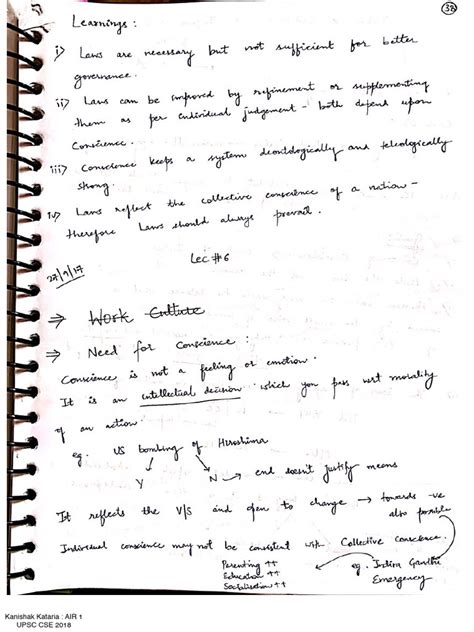 38
Learnings :
i) Laws are necessary but not sufficient for better
governance.
ii) Laws can be improved by refinement or supplementing
them as per individual judgement - both depend upon
Conscience.
iii) Conscience keeps a system deontologically and teleologically
strong.
iv) Laws reflect the collective conscience of a nation -
therefore Laws should always prevail.
Lec #6
27/9/17
⇒ Work Culture
⇒ Need for Conscience :
Conscience is not a feeling or emotion.
It is an intellectual decision which you pass wrt morality
of an action.
eg. US bombing of Hiroshima
Y N → end doesn't justify means
It reflects the V/S and open to change → towards -ve
also possible
Individual conscience may not be consistent with Collective conscience.
Parenting ++
Education ++
Socialisation ++
eg. Indira Gandhi
Emergency
Kanishak Kataria : AIR 1
UPSC CSE 2018